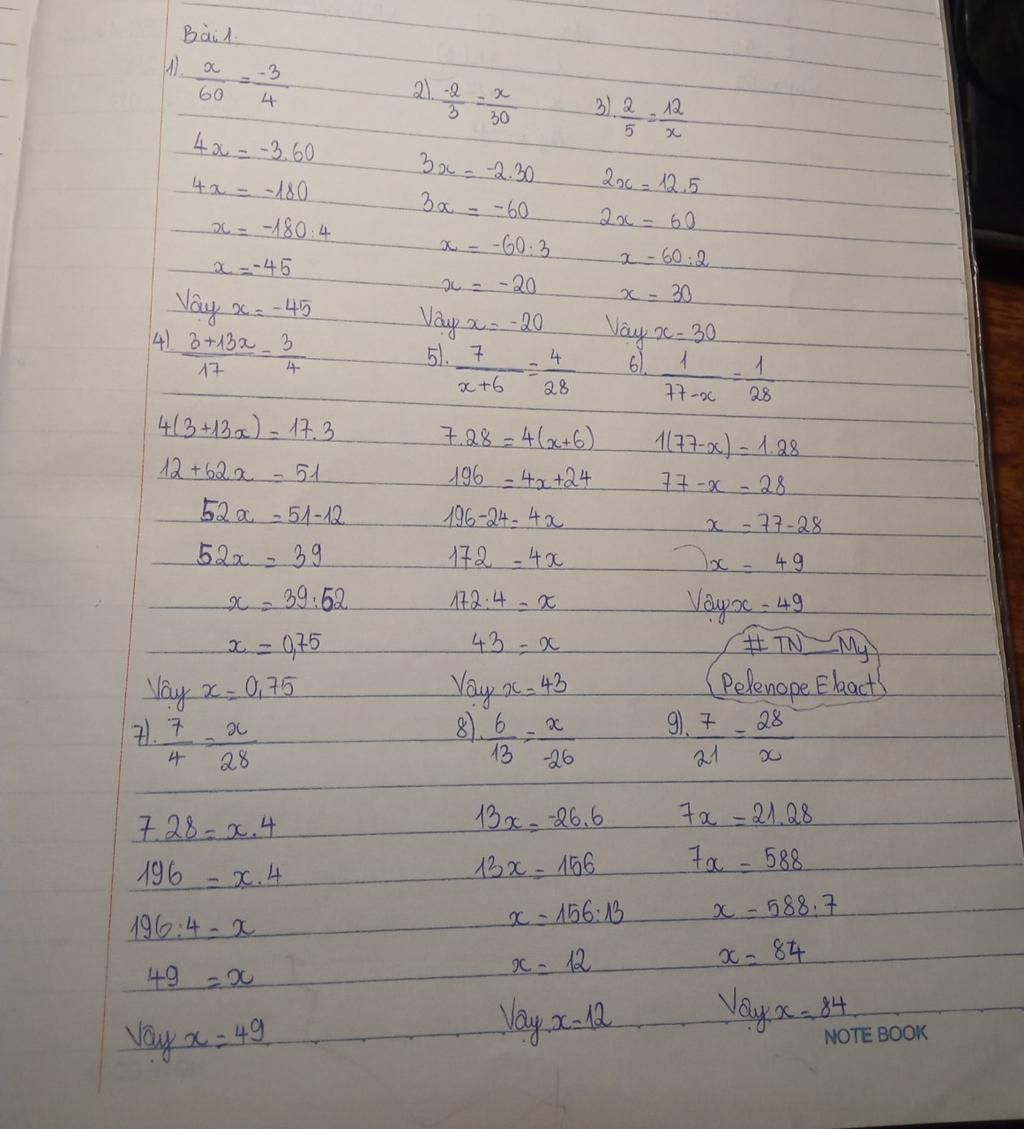 Bài 1.
1). x/60 = -3/4
2). -2/3 = x/30
3). 2/5 = 12/x
4x = -3.60
3x = -2.30
2x = 12.5
4x = -180
3x = -60
2x = 60
x = -180:4
x = -60:3
x = 60:2
x = -45
x = -20
x = 30
Vậy x = -45
Vậy x = -20
Vậy x = 30
4). 3+13x/17 = 3/4
5). 7/x+6 = 4/28
6). 1/77-x = 1/28
4(3+13x) = 17.3
7.28 = 4(x+6)
1(77-x) = 1.28
12+62x = 51
196 = 4x+24
77-x = 28
52x = 51-12
196-24 = 4x
x = 77-28
52x = 39
172 = 4x
x = 49
x = 39:52
172:4 = x
Vậy x = 49
x = 0,75
43 = x
# TN My
Vậy x = 0,75
Vậy x = 43
Pelenope Ekact
7). 7/4 = x/28
8). 6/13 = x/-26
9). 7/21 = 28/x
7.28 = x.4
13x = -26.6
7x = 21.28
196 = x.4
13x = 156
7x = 588
196:4 = x
x = 156:13
x = 588:7
49 = x
x = 12
x = 84
Vậy x = 49
Vậy x = 12
Vậy x = 84
NOTE BOOK